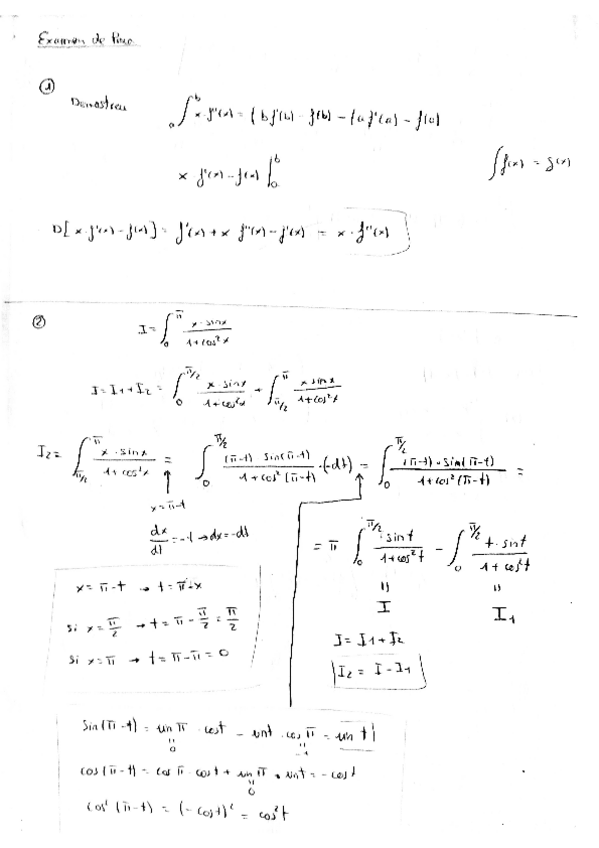 Examen de
①
Demostreu ∫_a^b x·f''(x) = (b f'(b) - f(b) - (a f'(a) - f(a)
x f'(x) - f(x) |_a^b
∫f(x) = g(x)
D[x·f'(x) - f(x)] = f'(x) + x f''(x) - f'(x) = x·f''(x)
②
I = ∫_0^π x·sinx / 1+cos²x
I = I1 + I2 = ∫_0^{π/2} x·sinx / 1+cos²x + ∫_{π/2}^π x sinx / 1+cos²x
I2 = ∫_{π/2}^π x·sinx / 1+cos²x = ∫_0^{π/2} (π-t) sin(π-t) / 1+cos²(π-t) ·(-dt) = ∫_0^{π/2} (π-t)·sin(π-t) / 1+cos²(π-t) =
x = π-t
dx/dt = -1 → dx = -dt
= π ∫_0^{π/2} sint / 1+cos²t - ∫_0^{π/2} t·sint / 1+cos²t
I I1
x = π-t → t = π-x
si x = π/2 → t = π - π/2 = π/2
si x = π → t = π-π = 0
I = I1 + I2
I2 = I - I1
sin(π-t) = sinπ·cost - sint·cosπ = sint
0 -1
cos(π-t) = cosπ·cost + sinπ·sint = -cost
0
cos²(π-t) = (-cost)² = cos²t